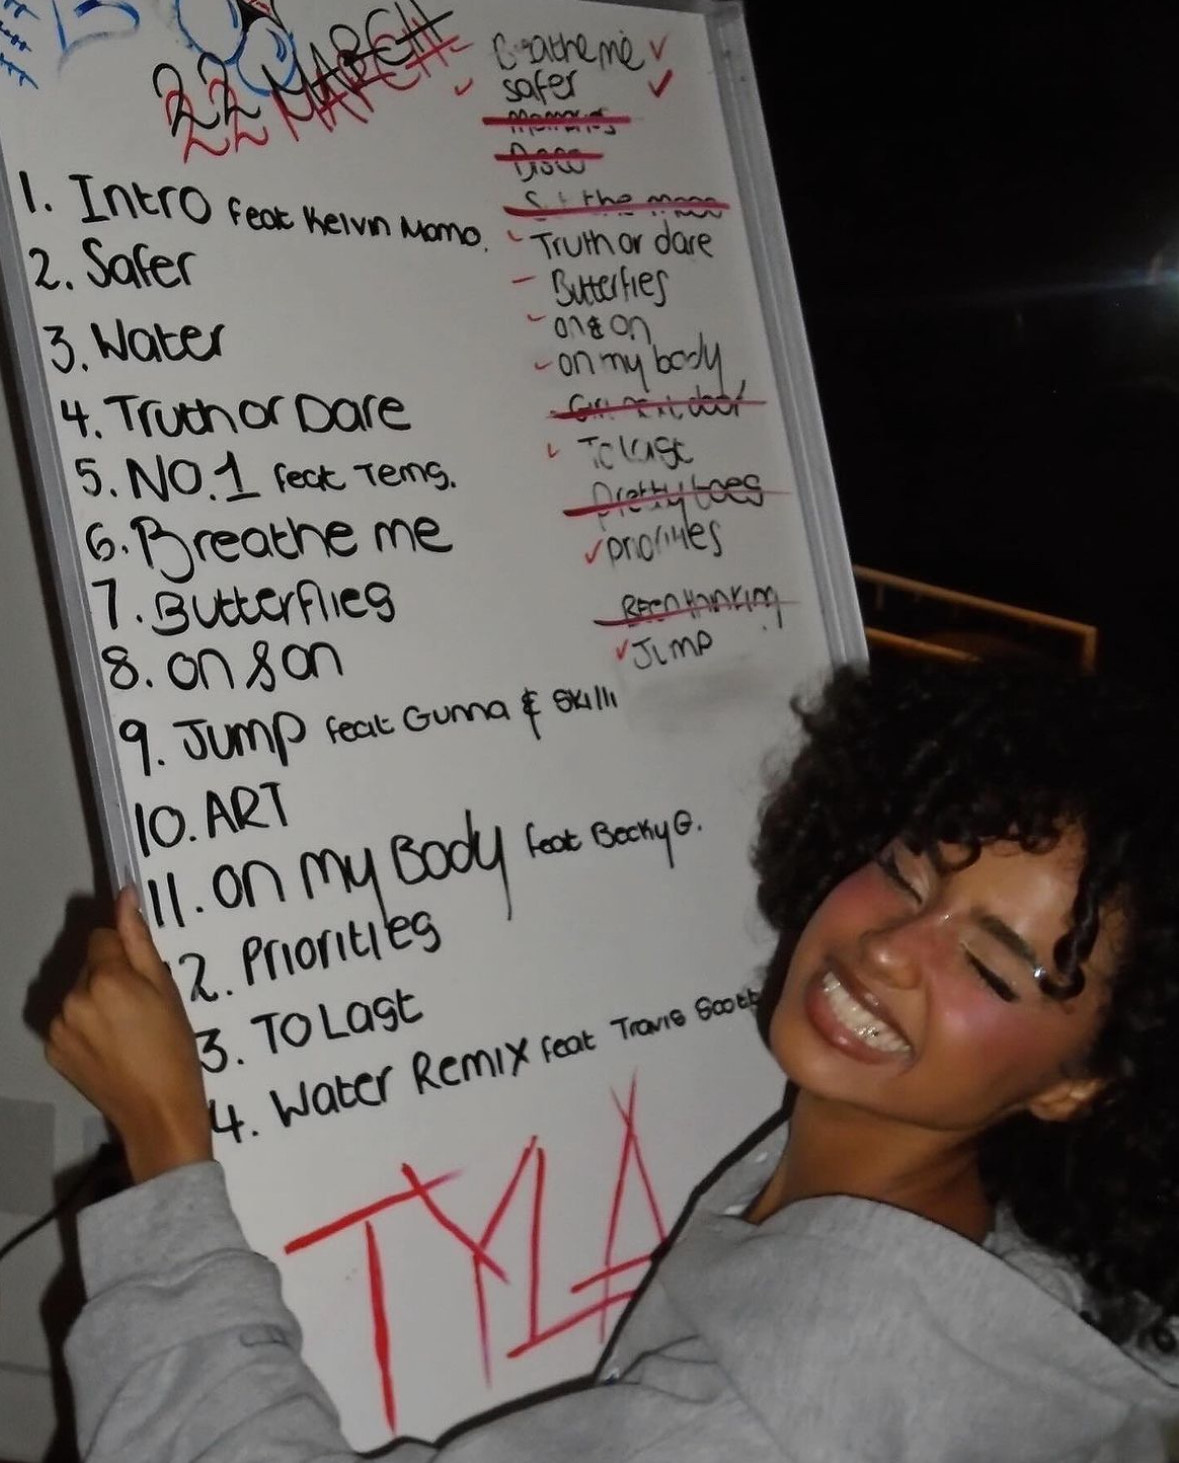 22 MARCH
1. Intro feat Kelvin Momo.
2. Safer
3. Water
4. Truth or Dare
5. NO.1 feat Tems.
6. Breathe me
7. Butterflies
8. on & on
9. Jump feat Gunna & Skilli
10. ART
11. on my Body feat Becky G.
12. Priorities
3. TO Last
4. Water Remix feat Travis Scott
TYLA
Breathe me
safer
Memories
Disco
the moon
Truth or dare
Butterfies
on & on
on my body
Girl next door
To last
Pretty toes
priorities
Been thinking
Jump